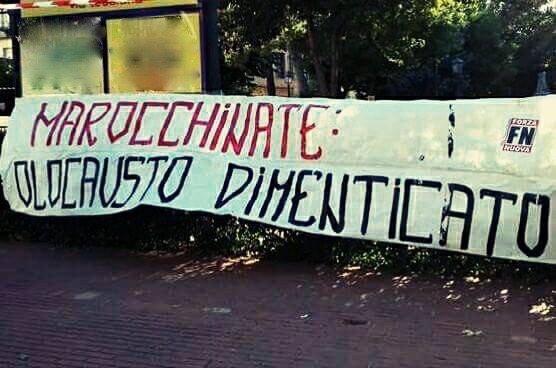 MAROCCHINATE:
OLOCAUSTO DIMENTICATO
FORZA
FN
NUOVA